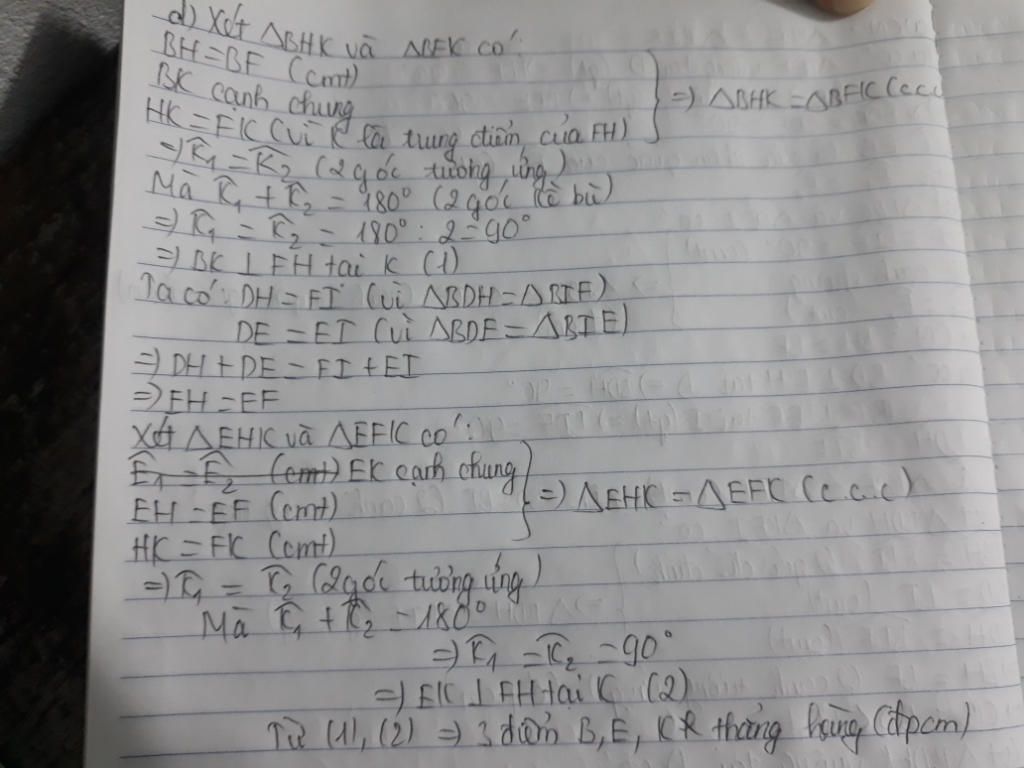 d) Xét ΔBHK và ΔBFK có:
BH = BF (cmt)
BK cạnh chung
HK = FK (vì K là trung điểm của FH)
=> ΔBHK = ΔBFK (c.c.c
=> K̂₁ = K̂₂ (2 góc tương ứng)
Mà K̂₁ + K̂₂ = 180° (2 góc kề bù)
=> K̂₁ = K̂₂ = 180° : 2 = 90°
=> BK ⊥ FH tại K (1)
Ta có: DH = FI (vì ΔBDH = ΔBIF)
DE = EI (vì ΔBDE = ΔBIE)
=> DH + DE = FI + EI
=> EH = EF
Xét ΔEHK và ΔEFK có:
Ê₁ = Ê₂ (cmt) EK cạnh chung
EH = EF (cmt)
HK = FK (cmt)
=> ΔEHK = ΔEFK (c.c.c)
=> K̂₁ = K̂₂ (2 góc tương ứng)
Mà K̂₁ + K̂₂ = 180°
=> K̂₁ = K̂₂ = 90°
=> EK ⊥ FH tại K (2)
Từ (1), (2) => 3 điểm B, E, K thẳng hàng (đpcm)